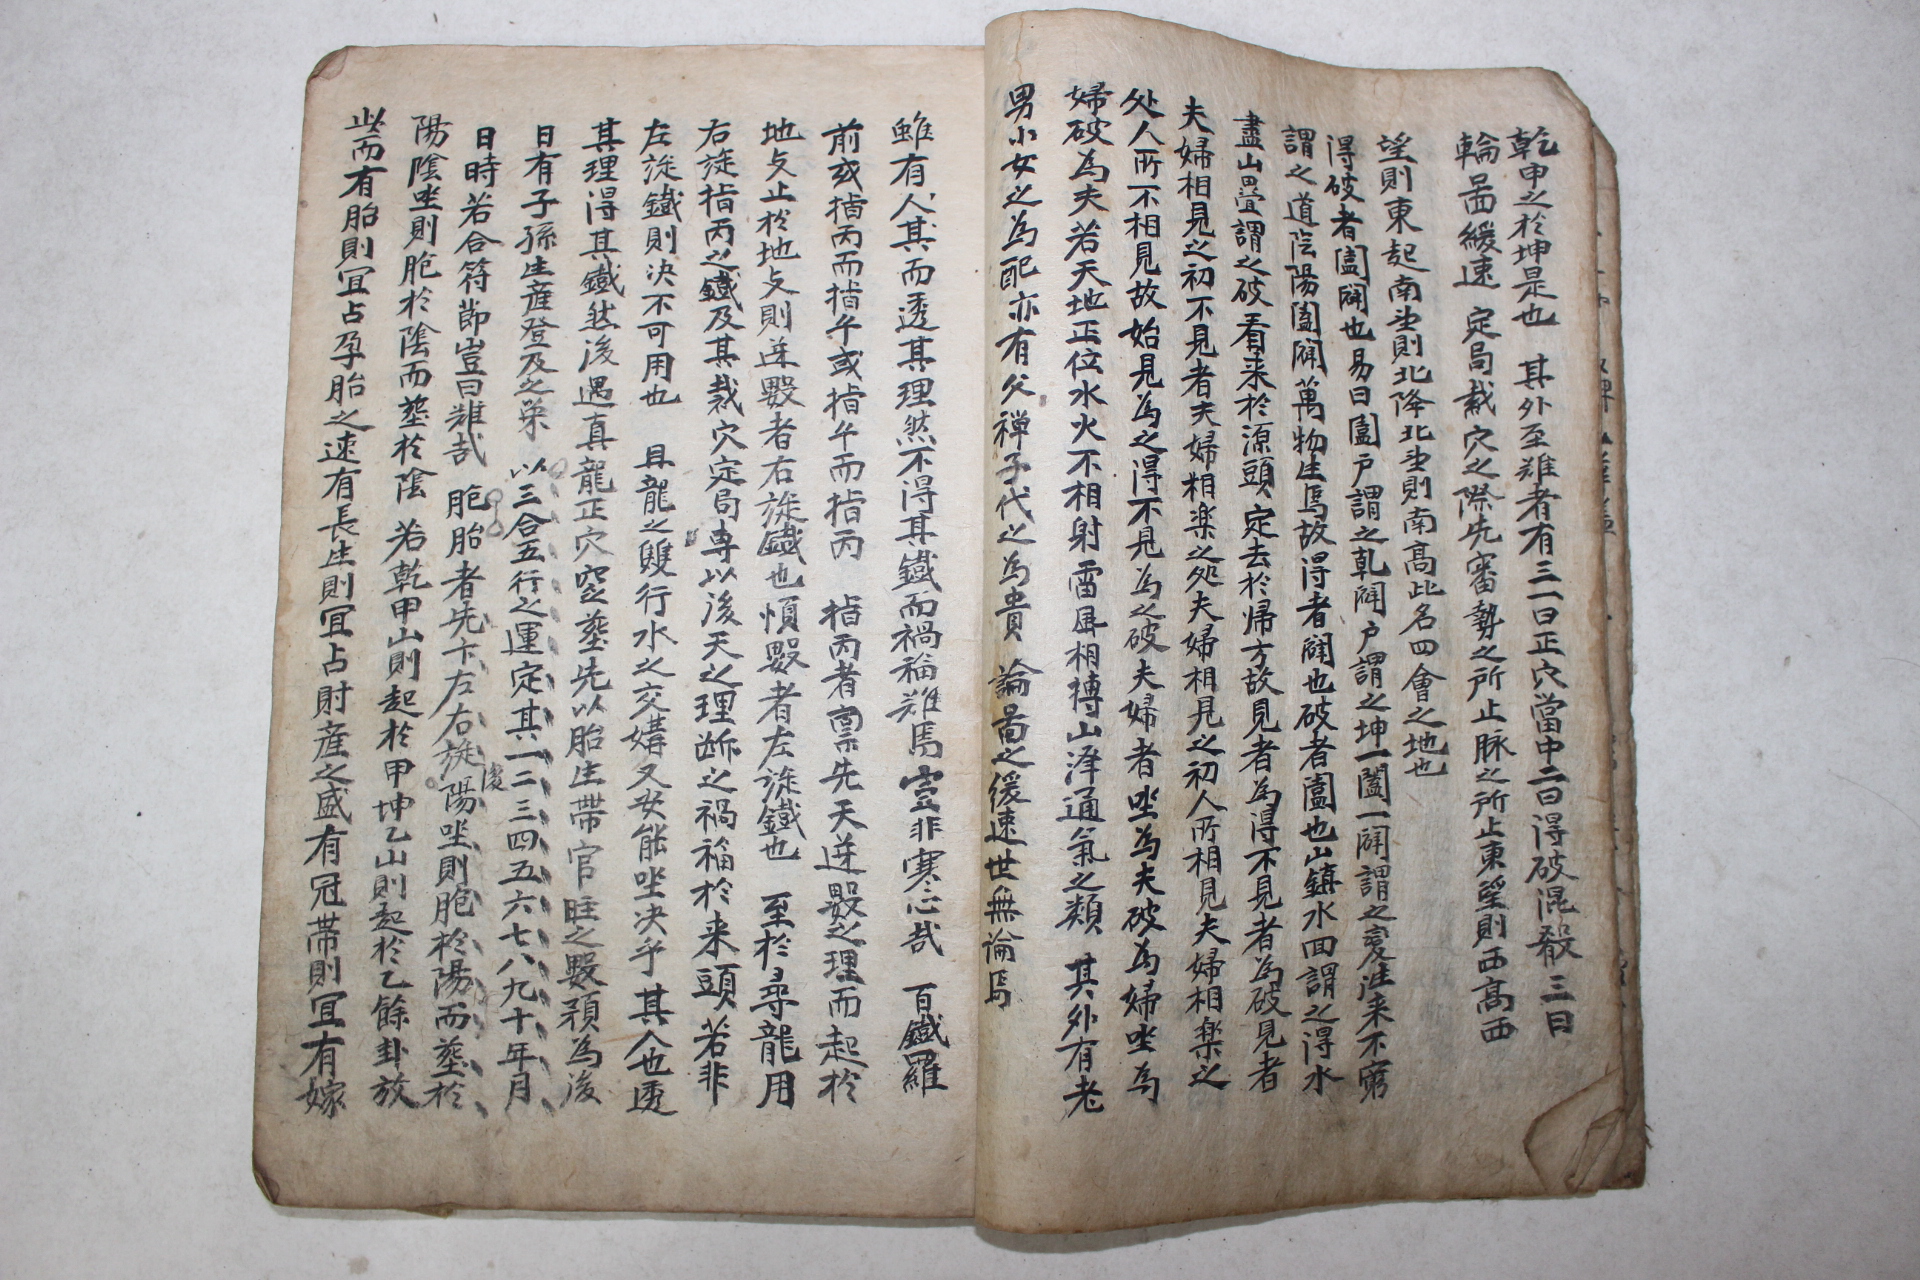 乾甲之於坤是也 其外至難者有三一曰正穴當中二曰得破混殺三曰
輪啚緩速 定局裁穴之際先審勢之所止脉之所止東望則西高西
望則東起南坐則北降北坐則南高此名四會之地也
得破者闔闢也易曰闔戶謂之乾闢戶謂之坤一闔一闢謂之変往来不窮
謂之道陰陽闔闢萬物生焉故得者闢也破者闔也山鎮水回謂之得水
盡山疊謂之破看来於源頭定去於歸方故見者為得不見者為破見者
夫婦相見之初不見者夫婦相楽之処夫婦相見之初人所相見夫婦相楽之
处人所不相見故始見為之得不見為之破夫婦者坐為夫破為婦坐為
婦破為夫若天地正位水火不相射雷風相搏山泽通氣之類 其外有老
男小女之為配亦有父禅子代之為貴 論啚之緩速世無論焉
雖有人其而透其理然不得其鐵而禍福難焉豈非寒心哉 百鐵羅
前或指丙而指午或指午而指丙 指丙者禀先天逆數之理而起於
地攴止於地攴則逆數者右旋鐵也順數者左旋鐵也 至於尋龍用
右旋指丙之鐵及其裁穴定局專以後天之理断之禍福於来頭若非
左旋鐵則决不可用也 且龍之雙行水之交媾又安能坐决乎其人也透
其理得其鐵然後遇真龍正穴窆葬先以胎生帶官旺之數預為後
日有子孫生産登及之榮 以三合五行之運定其一二三四五六七八九十年月
日時若合符節豈曰難哉 胞胎者先卞左右旋後陽坐則胞於陽而葬於
陽陰坐則胞於陰而葬於陰 若乾甲山則起於甲坤乙山則起於乙餘卦放
此而有胎則冝占孕胎之速有長生則冝占財産之盛有冠帶則冝有嫁